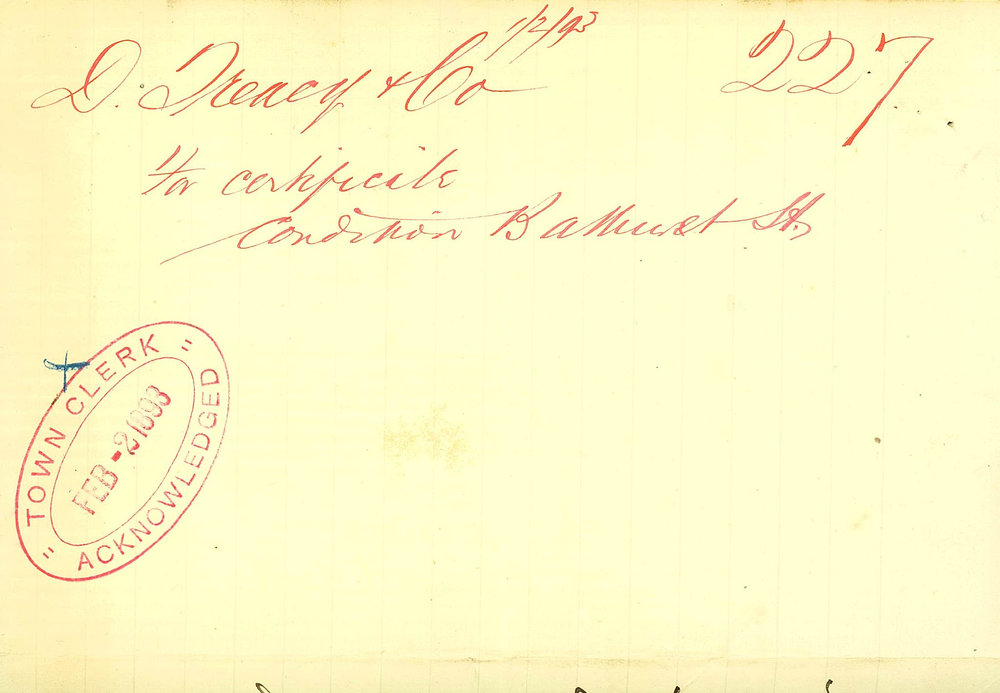 1/2/93
D. Treacy & Co 227
for certificate
Condition Bathurst St.
TOWN CLERK
FEB - 2 1893
ACKNOWLEDGED